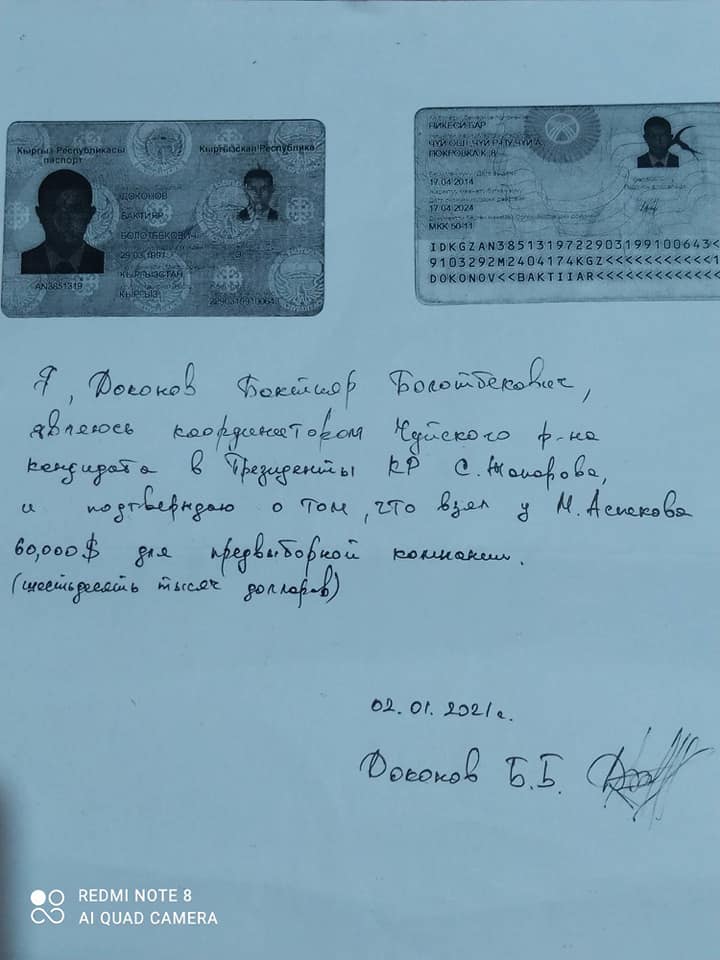 Кыргыз Республикасы
паспорт
Кыргызская Республика
ДОКОНОВ
БАКТИЯР
БОЛОТБЕКОВИЧ
29.03.1991
КЫРГЫЗСТАН
КЫРГЫЗ
AN3851319
НИКЕСИ БАР
ПОКРОВКА К., 8
17.04.2014
17.04.2024
МКК 50-11
IDKGZAN3851319722903199100643<
9103292M2404174KGZ<<<<<<<<<<<1
DOKONOV<<BAKTIIAR<<<<<<<<<<<<<
Я, Доконов Бактияр Болотбекович,
являюсь координатором Чуйского р-на
кандидата в Президенты КР С. Жапарова,
и подтверждаю о том, что взял у М. Аспекова
60,000$ для предвыборной компании.
(шестьдесять тысяч долларов)
02.01.2021г.
Доконов Б.Б.
REDMI NOTE 8
AI QUAD CAMERA